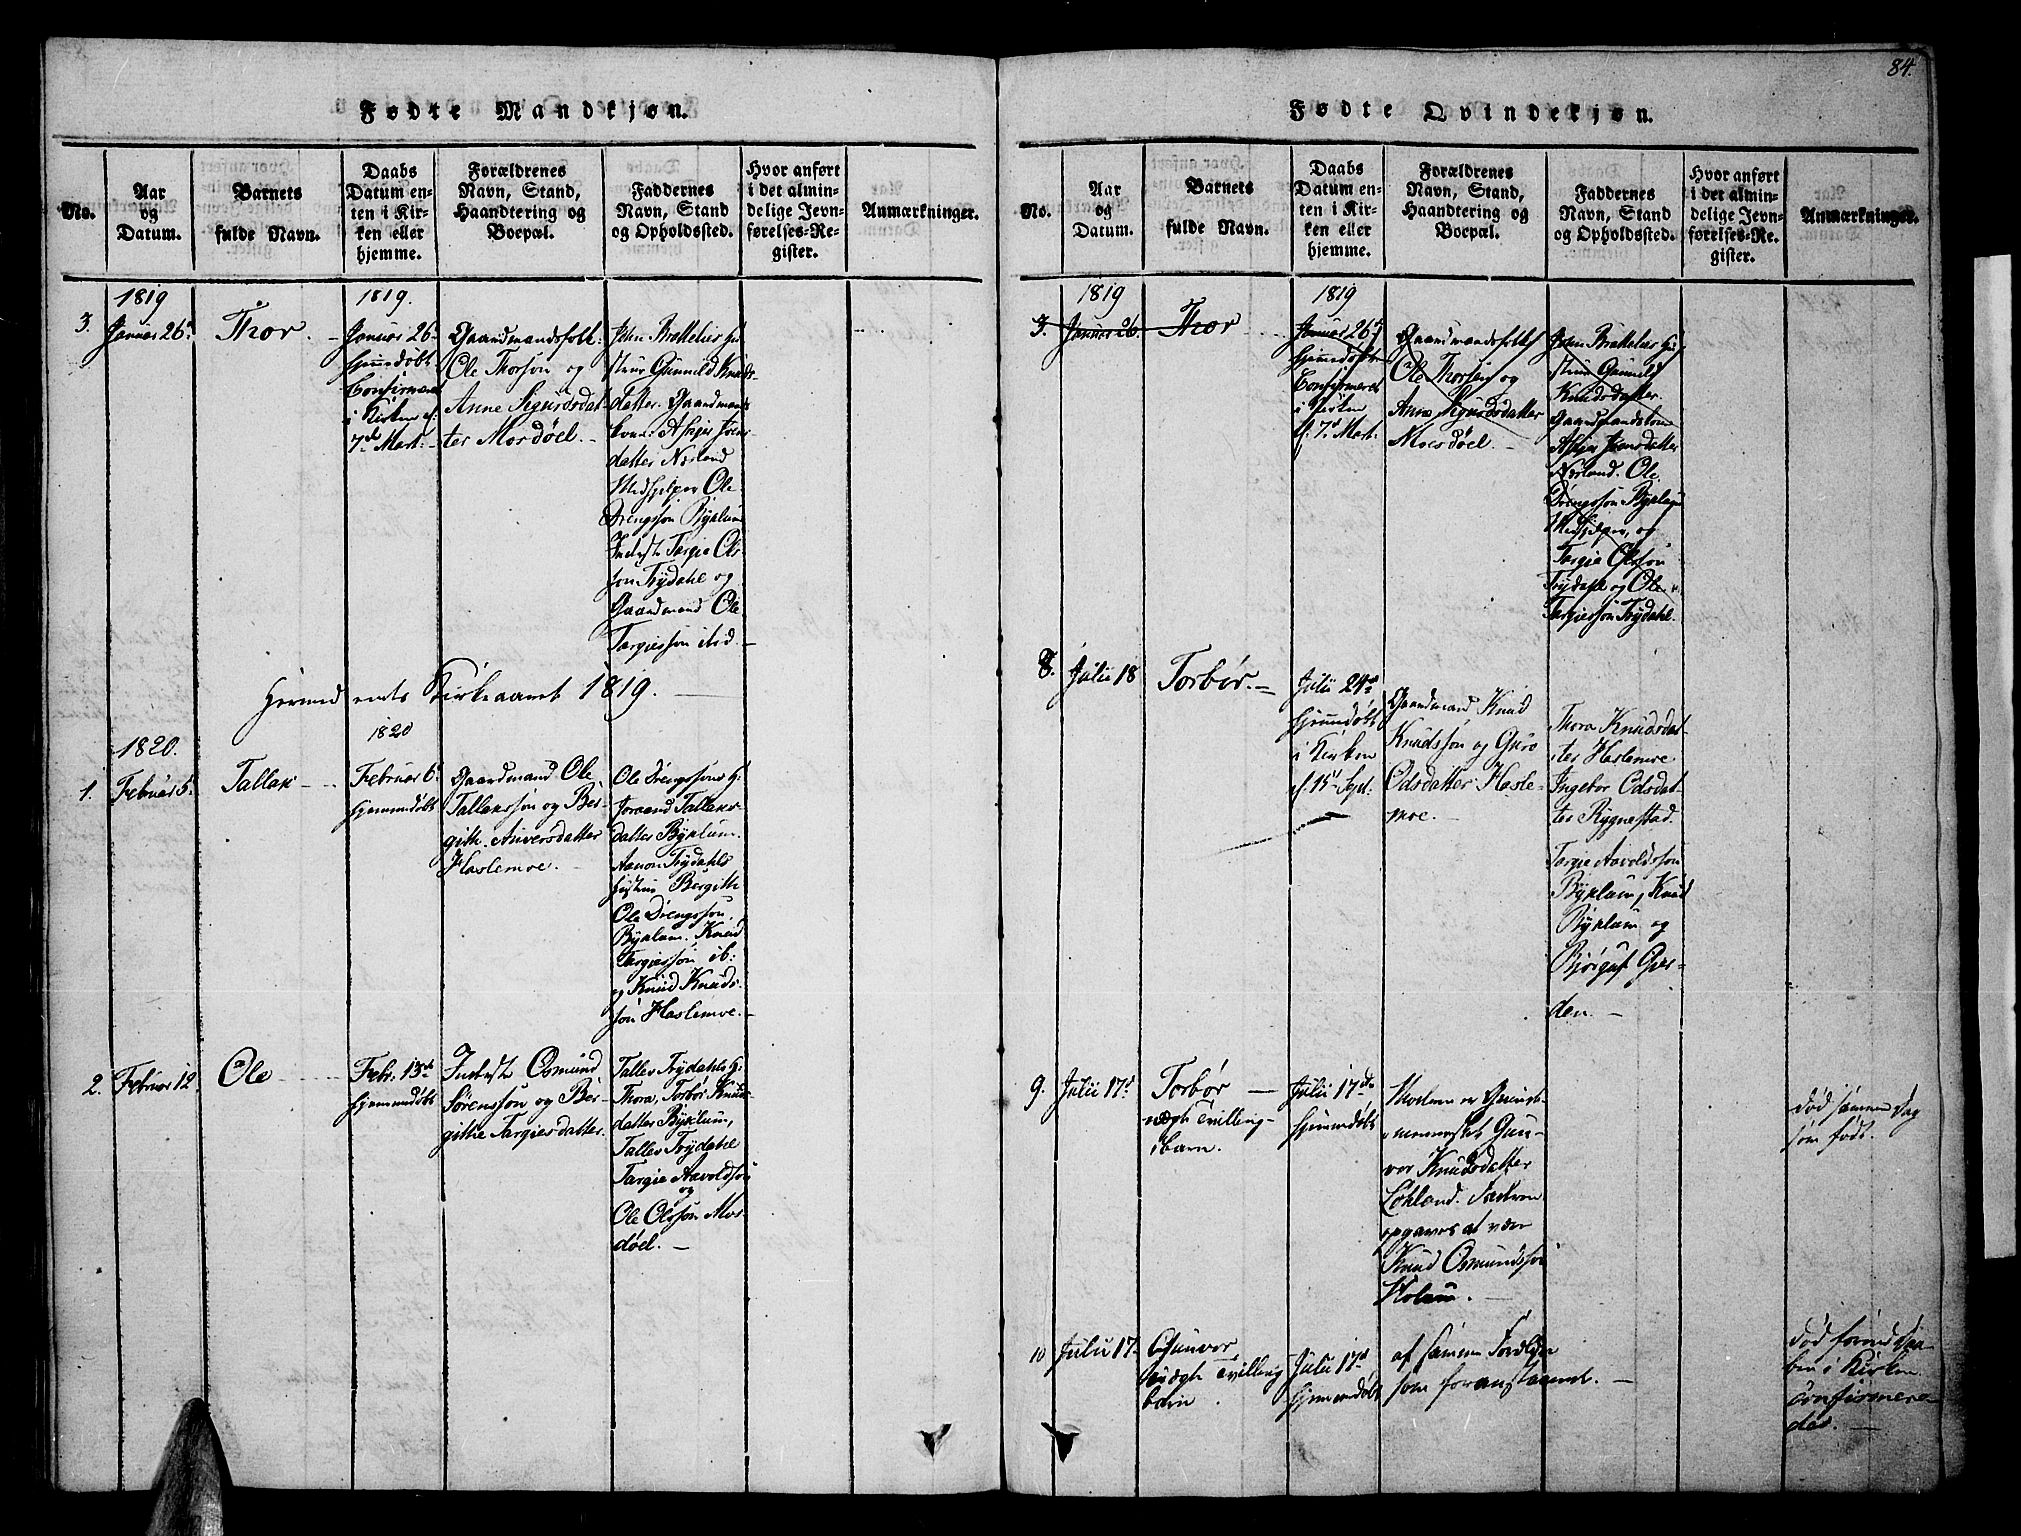 84.
Fødte Mandkjøn.
No.
Aar
og
Datum.
Barnets
fulde Navn.
Daabs
Datum en-
ten i Kir-
ken eller
hjemme.
Forældrenes
Navn, Stand,
Haandtering og
Boepæl.
Faddernes
Navn, Stand
og Opholdssted.
Hvor anført
i det almin-
delige Jevn-
førelses-Re-
gister.
Anmærkninger.
1819
3.
Januar 26.
Thor.
1819.
Januar 26
hjemmedøbt
Confirmeret
i Kirken d.
7de Mart:
Gaardmandsfolk:
Ole Thorson og
Anne Sigurdsdat-
ter Mordøel.
John Brattelies Hu
strue Gunnild Knuds-
datter. Gaardmands
kone: Asieger Jens
datter Norland
Medhjelper Ole
Drengsson Byklum
Inderst Targie Ols-
son Trydahl og
Gaardmand Ole
Targiesson ibid.
Hermed endes Kirkeaaret 1819.
1820.
1.
Februar 5.
Tallak
1820
Februar 6.
hjemmedøbt
Gaardmand Ole
Tallaksson og Ber-
gith. Anversdatter
Haslemoe.
Ole Drengssons H:
Joraand Tallaks-
datter Byklum.
Aanon Trydahls
hustrue Bergith
Ole Drengsson
Byklum. Knud
Targiesson ib:
og Knud Knuds-
søn Haslemoe.
2.
Februar 12.
Ole
Febr. 13de
hjemmedøbt
Inderst Osmund
Sørensson og Ber-
gitte Targiesdatter.
Talles Trydahls H:
Thora, Torbør Knuds
datter Byklum,
Talles Trydahl
Targie Aavoldsson
og
Ole Olsson Mor-
døel.
Fødte Qvindekjøn.
No.
Aar
og
Datum.
Barnets
fulde Navn.
Daabs
Datum en-
ten i Kir-
ken eller
hjemme.
Forældrenes
Navn, Stand,
Haandtering og
Boepæl.
Faddernes
Navn, Stand
og Opholdssted.
Hvor anført
i det almin-
delige Jevn-
førelses-Re-
gister.
Anmærkninger.
1819
3.
Januar 26.
Thor
1819
Januar 26d
hjemmedøbt
Confirmeret
i Kirken
d. 7d Mart:
Gaardmandsfolk
Ole Thorsen og
Anne Sigurdsdatter
Moerdøel.
John Brattelies Hu
strue Gunnild
Knudsdatter
Gaardmandskone
Asieger Jensdatter
Norland. Ole
Drengsson Byklum
Medhjelper, og
Targie Olsson
Trydahl og Ole
Targiesson Trydahl.
8.
Julii 18
Torbør.
Julii 24de
hjemmedøbt
i Kirken
d. 15d Sept.
Gaardmand Knud
Knudsson og Guro
Odsdatter Hasle-
moe.
Thora Knudsdat-
ter Haslemoe
Ingebor Odsdat-
ter Rygnestad.
Targie Aavoldsson
Byklum, Knud
Byklum og
Bjørguf Gjer-
den.
9.
Julii 17d
Torbør
uægte Tvilling-
barn.
Julii 17de
hjemmedøbt
Moderen er Qvinde-
mennesket Gun-
vor Knudsdatter
Løkland. Faderen
opgaves at være
Knud Osmundsson
Holum.
død samme Dag
som født.
10
Julii 17
Gunvor
uægte Tvilling
barn.
Julii 17d
hjemmedøbt
af samme Forældre
som foranstaaende.
død forend Daa-
ben i Kirken
confirmere-
des.